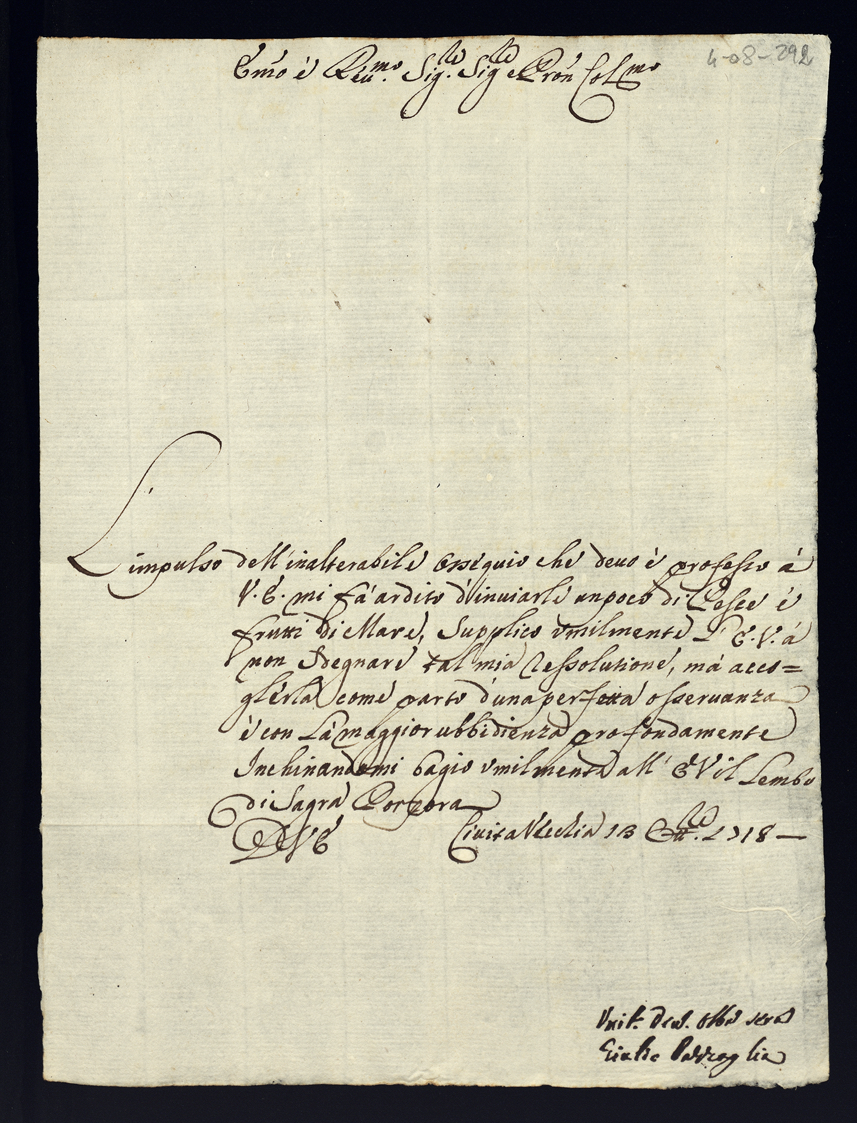 4-08-292
Emo è Reu.mo Sig.re Sig.re Pron Col.mo
L'impulso dell'inalterabile osséquio ché deuo è professo á
V.E. mi fá ardito d'inuiarle unpoco di Pesce é
frutti di Mare, Supplico vmilmente L'E.V. á
non Sdegnare tal mia ressolutione, má acco=
glerla come parto d'una perfetta osseruanza
è con La maggior ubbidienza profondamente
Inchinandomi bagio vmilmente all' E V il Lembo
di Sagra Porpora
D V E Ciuita Vechia 13 Ott.re 1718 —
Vmil. deu. obb.